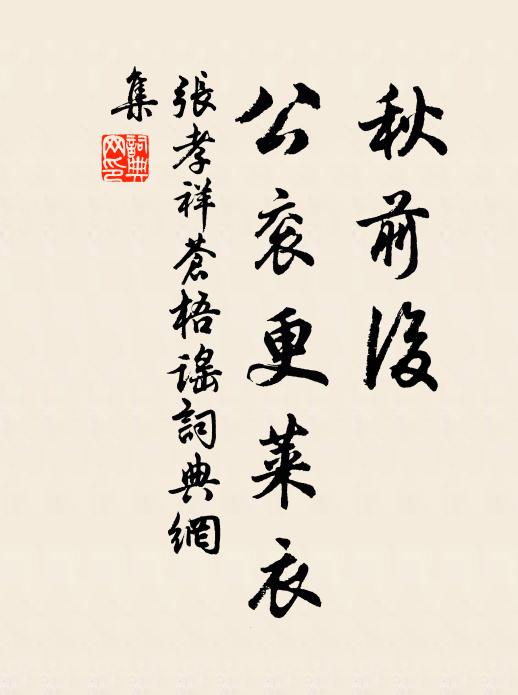 秋前後
公衮更萊衣
張孝祥蒼梧謠詞典網
集
詞典
网印